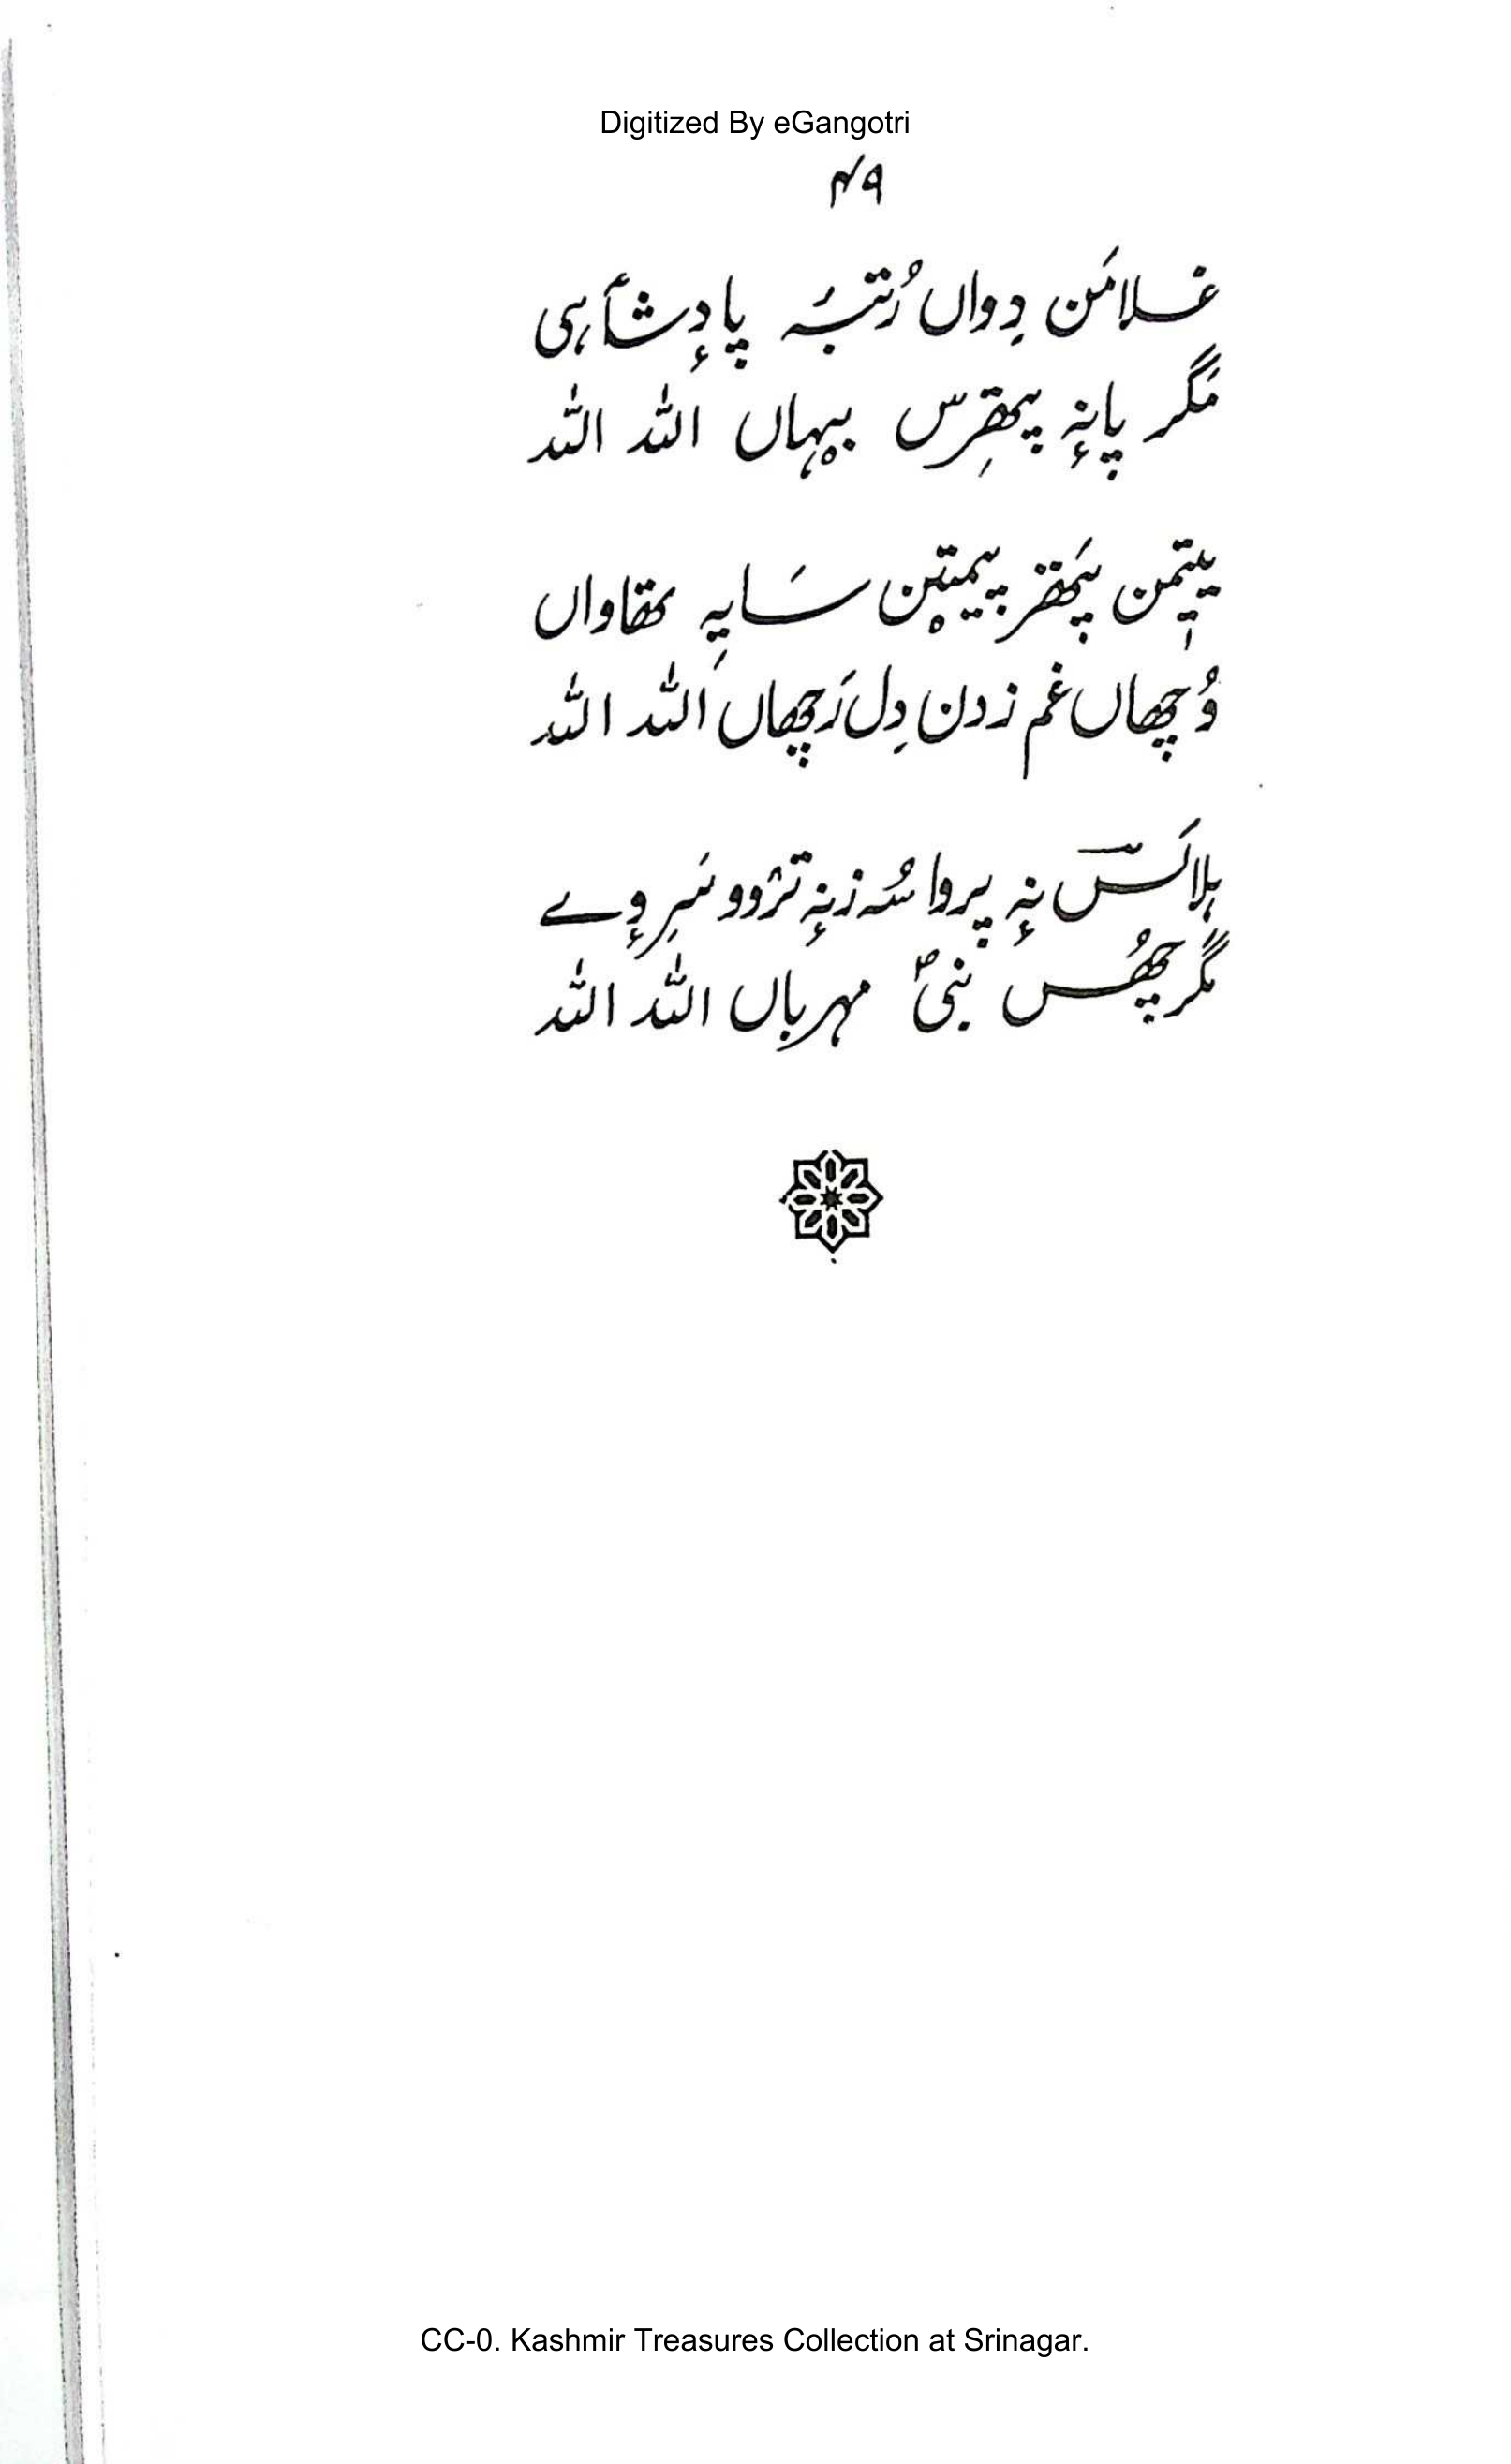 Digitized By eGangotri
۴۹
غلامَن دِواں رُتبۂ پادٕشٲہی
مَگر پانہٕ پیٚھرِس بِہاں اللہ اللہ
یتیٖمن پیٚٹھ سَایہِ تھاواں
وُچھاں غم زدن دِل رَچھاں اللہ اللہ
ہلالَسؔ نہٕ پروا سُہ زنہٕ سَرِوٕے
مگر چھُس نبیؐ مہرباں اللہ اللہ
CC-0. Kashmir Treasures Collection at Srinagar.